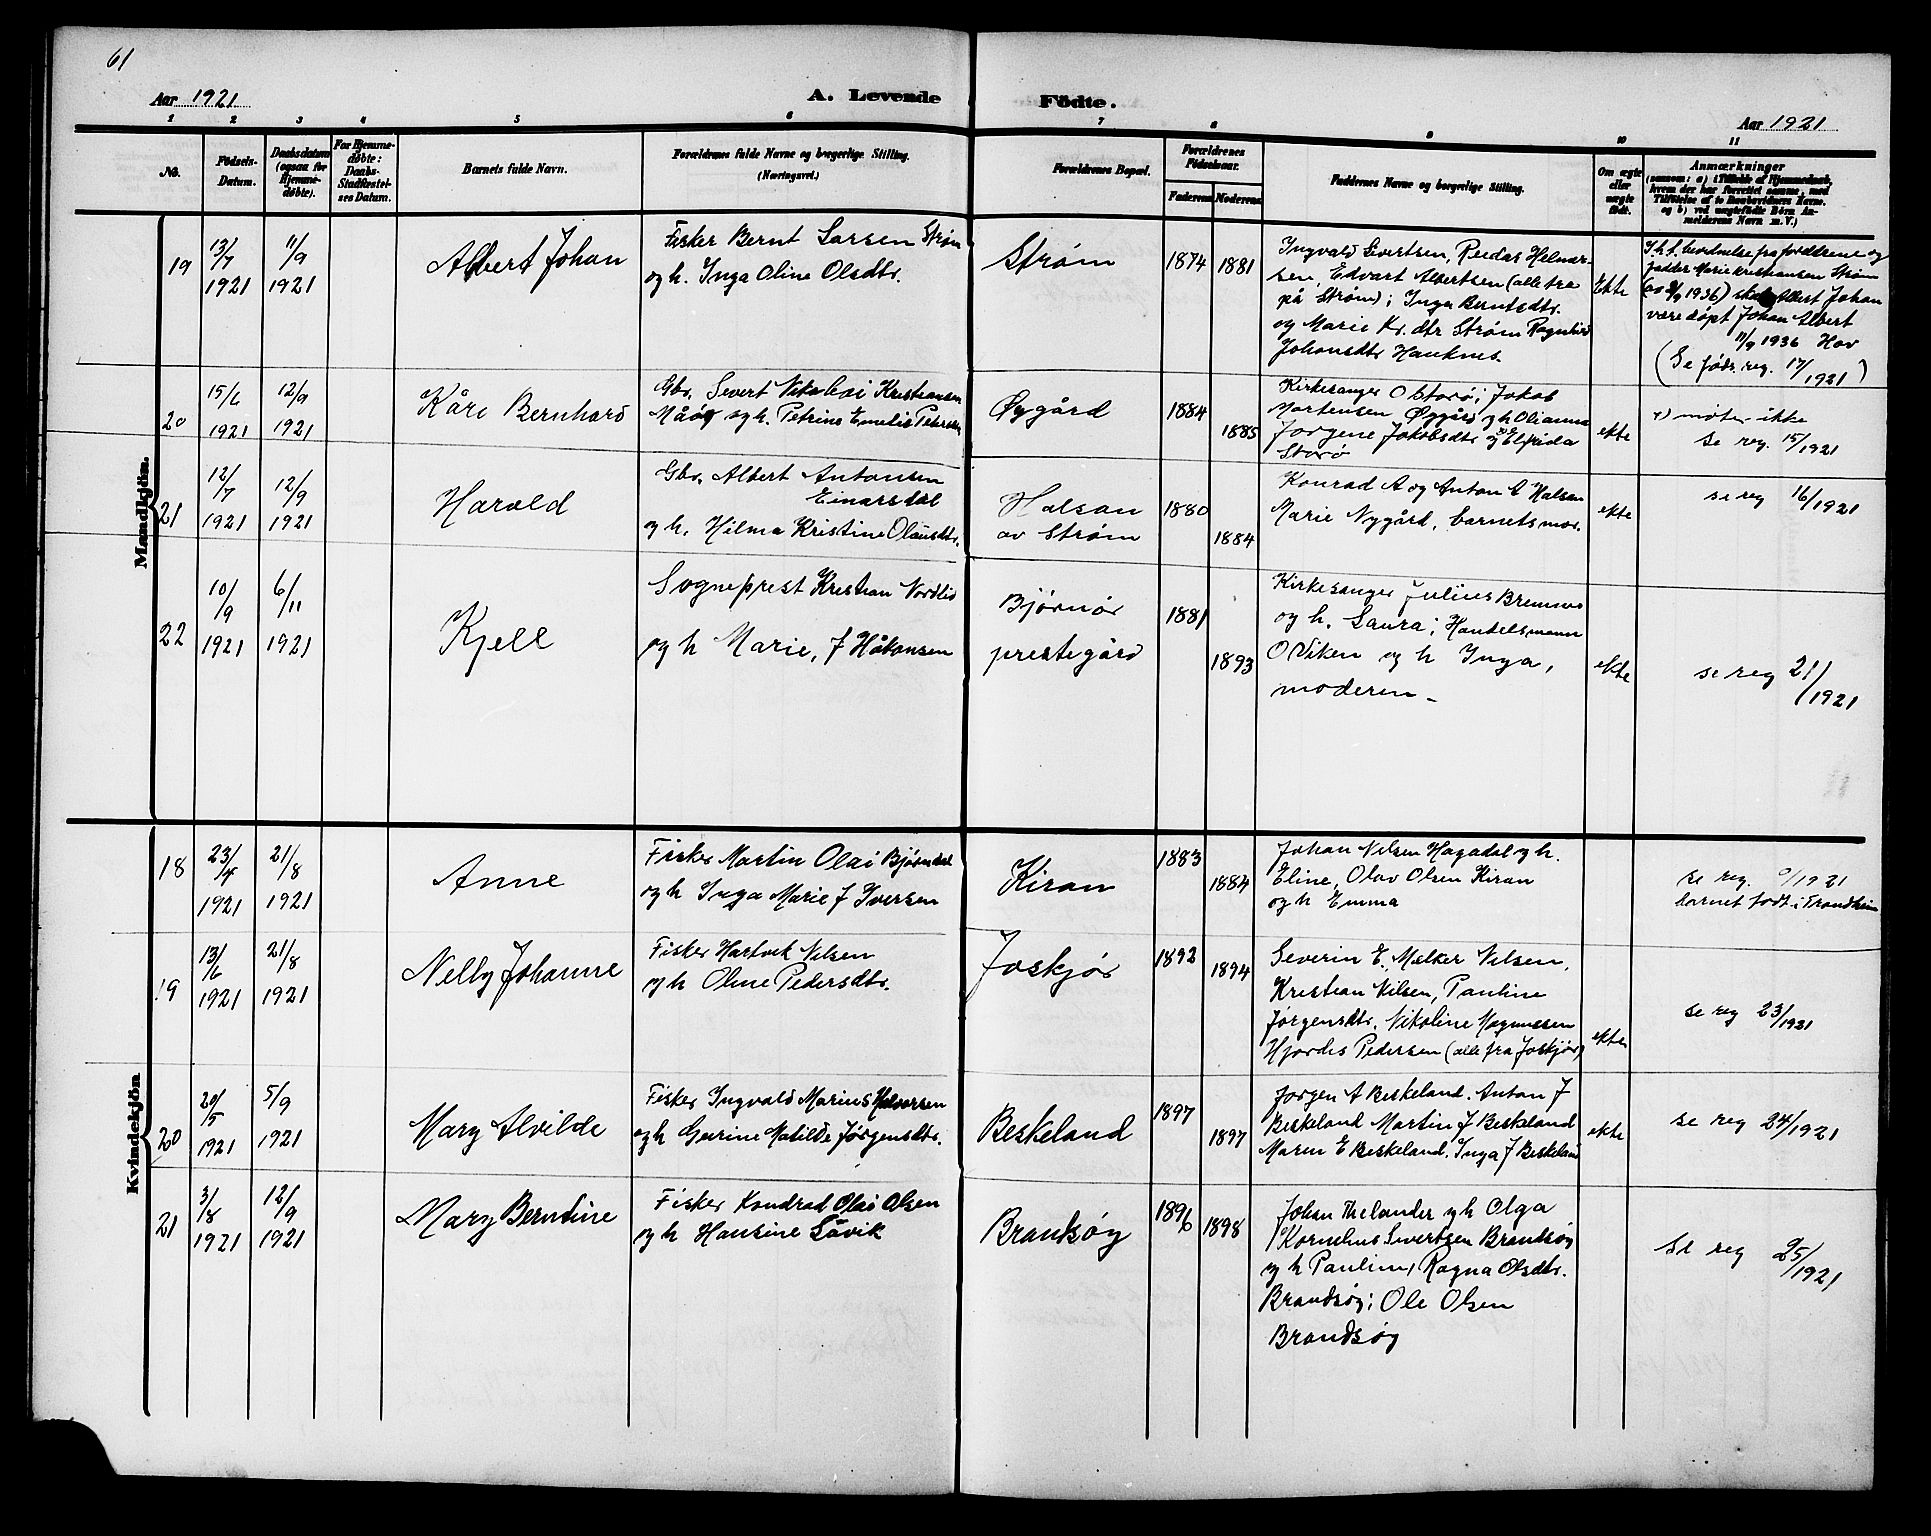 61
Aar 1921
A. Levende
Födte.
Aar 1921
1 2 3 4 5 6 7 8 9 10 11
No.
Födsels-
Datum.
Daabsdatum
(ogsaa for
Hjemme-
döbte).
For Hjemme-
döbte:
Daabs-
Stadfæstel-
ses Datum.
Barnets fulde Navn.
Forældrenes fulde Navne og borgerlige Stilling.
(Næringsvei.)
Forældrenes Bopæl.
Forældrenes
Födselsaar.
Faderens
Moderens
Faddernes Navne og borgerlige Stilling.
Om ægte
eller
uægte
født.
Anmærkninger
(saasom: a) i Tilfælde af Hjemmedaab,
hvem der har forrettet samme, med
Tilföielse af to Daabsvidners Navne,
og b) ved uægtefödte Börn An-
melderens Navn m. V.)
Mandkjön.
19
13/7
1921
11/9
1921
Albert Johan
Fisker Bernt Larsen Strøm
og h. Inga Oline Olsdtr.
Strøm
1874
1881
Ingvald Sivertsen, Reidar Helmer-
sen, Edvart Albertsen (alle fra
på Strøm); Inga Berntsdtr.
og Marie Kr. dtr Strøm Ragnhild
Johansdtr Hauknes.
Ekte
I h. t. bevidnelse fra foreldrene og
fadder Marie Kristiansen Strøm
(av 8/9 1936) skal Albert Johan
være døpt Johan Albert
11/9 1936 Hov
(Se føds. reg. 17/1921)
20
15/6
1921
12/9
1921
Kåre Bernhard
Gbr. Severt Nikolai Kristiansen
Måøy og h. Petrine Emelie Petersen
Øygård
1884
1885
Kirkesanger O Storø; Jakob
Mortensen Øygård og h Olianna
Jorgene Jakobsdtr og Elfrida
Storø
ekte
møter ikke
se reg. 15/1921
21
12/7
1921
12/9
1921
Harald
Gbr. Albert Antonsen
Einarsdal
og h. Hilma Kristine Olausdtr.
Halsan
av Strøm
1880
1884
Konrad A og Anton A Halsan
Marie Nygård, barnets mor.
ekte
se reg 16/1921
22
10/9
1921
6/11
1921
Kjell
Sogneprest Kristian Nordlid
og h Marie, f Håkonsen
Bjørnør
prestegård
1881
1893
Kirkesanger Julius Bremnes
og h. Laura; Handelsmann
O Viken og h Inga,
moderen -
ekte
se reg 21/1921
Kvindekjön
18
23/4
1921
21/8
1921
Anne
Fisker Martin Olai Bjørndal
og h Inga Marie f Iversen
Kiran
1883
1884
Johan Nilsen Hagadal og h.
Eline, Olav Olsen Kiran
og h Emma
se reg. 0/1921
barnet født i Trondheim
19
13/6
1921
21/8
1921
Nelly Johanne
Fisker Hartvik Nilsen
og h Oline Pedersdtr.
Joskjør
1892
1894
Severin E. Melker Nilsen,
Kristian Nilsen, Pauline
Jørgensdtr. Nikoline Magnussen
Hjordis Pedersen (alle fra Joskjør)
ekte
se reg 23/1921
20
20/5
1921
5/9
1921
Mary Alvilde
Fisker Ingvald Marius Halvorsen
og h Gurine Matilde Jørgensdtr.
Beskeland
1897
1897
Jorgen A Beskeland. Anton J
Beskeland Martin J Beskeland
Maren E Beskeland. Inga J Beskeland
ekte
se reg 24/1921
21
3/8
1921
12/9
1921
Mary Berndine
Fisker Kondrad Olai Olsen
og h Hansine Såvik
Brandsøy
1896
1898
Johan Thelander og h Olga
Kornelius Sivertsen Brandsøy
og h Pauline, Ragna Olsdtr.
Brandsøy; Ole Olsen
Brandsøy
Se reg 25/1921